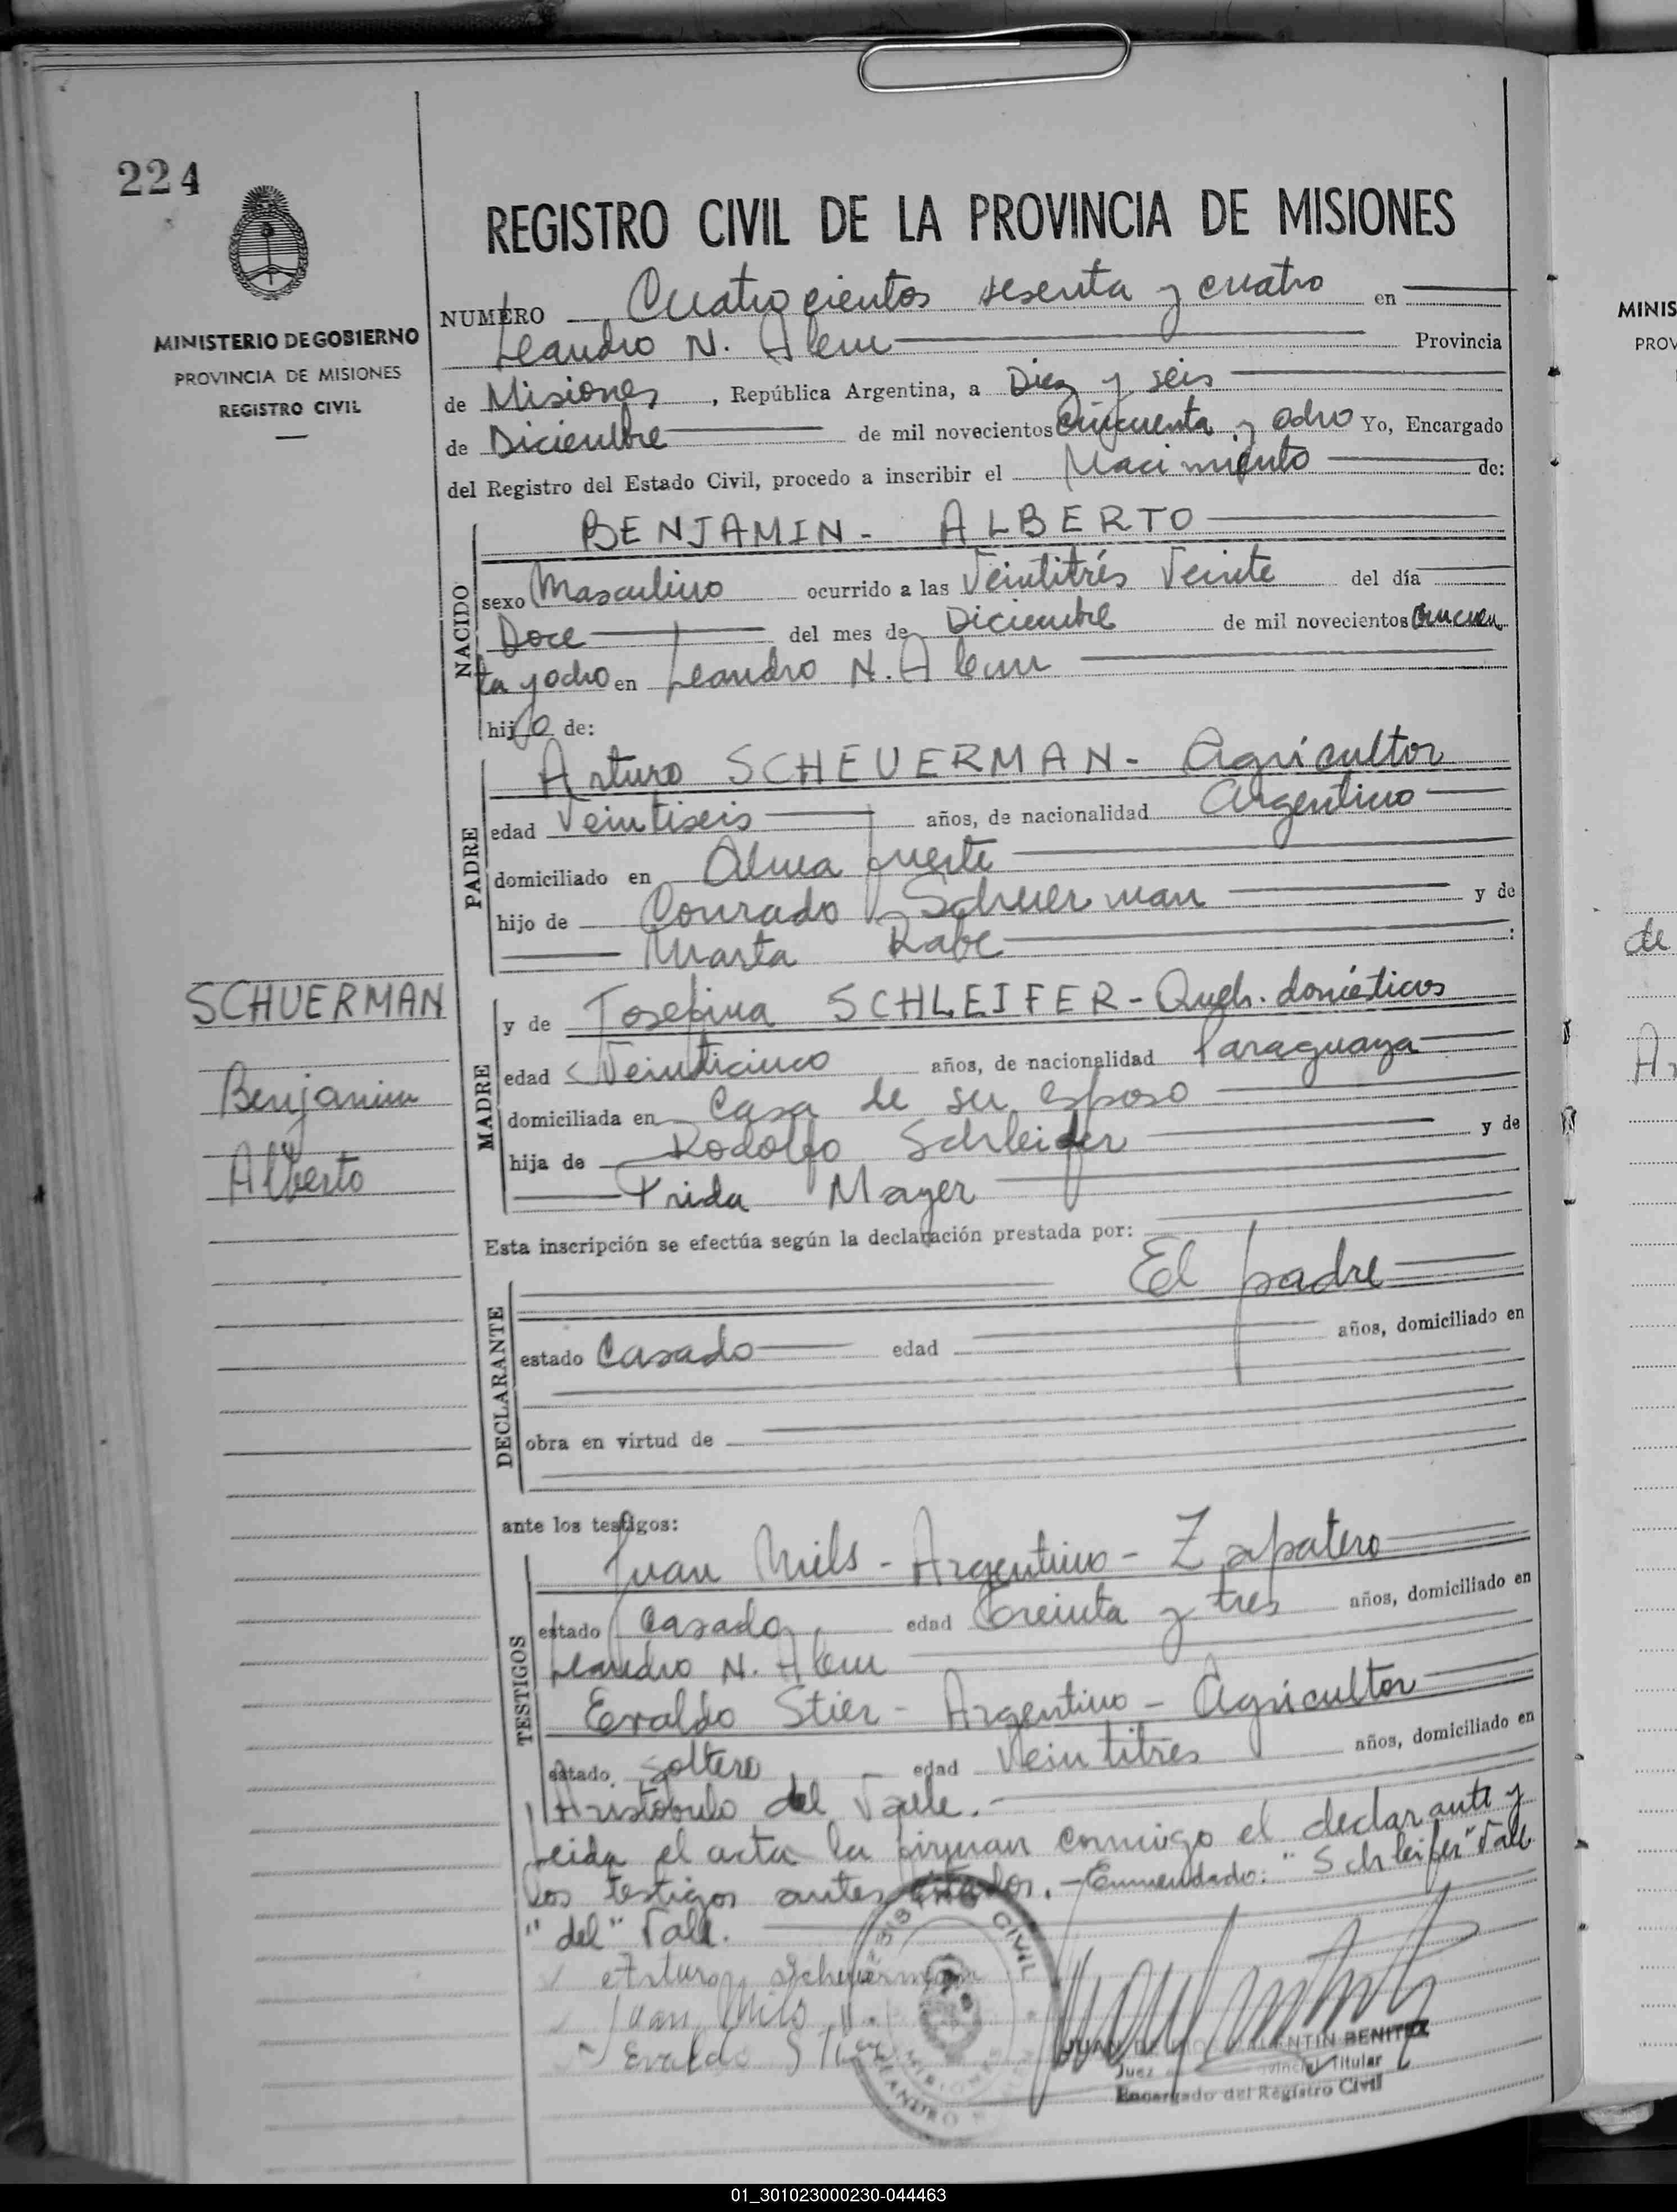 224
REGISTRO CIVIL DE LA PROVINCIA DE MISIONES
MINISTERIO DE GOBIERNO
PROVINCIA DE MISIONES
REGISTRO CIVIL
NUMERO Cuatrocientos sesenta y cuatro en
Leandro N. Alem Provincia
de Misiones, República Argentina, a Diez y seis
de Diciembre de mil novecientos cincuenta y ocho Yo, Encargado
del Registro del Estado Civil, procedo a inscribir el Nacimiento de:
NACIDO
BENJAMIN - ALBERTO
sexo Masculino ocurrido a las Veintitrés Veinte del día
Doce del mes de Diciembre de mil novecientos cincuen
ta y ocho en Leandro N. Alem
hijo de:
PADRE
Arturo SCHEUERMAN - Agricultor
edad Veintiseis años, de nacionalidad Argentino
domiciliado en Alma fuerte
hijo de Conrado Scheuerman y de
Marta Rabe :
SCHUERMAN
Benjamin
Alberto
MADRE
y de Josefina SCHLEIFER - Queh. domésticos
edad Veinticinco años, de nacionalidad Paraguaya
domiciliada en Casa de su esposo
hija de Rodolfo Schleifer y de
Frida Mayer
Esta inscripción se efectúa según la declaración prestada por:
DECLARANTE
El padre
estado Casado edad años, domiciliado en
obra en virtud de
ante los testigos:
TESTIGOS
Juan Mils - Argentino - Zapatero
estado Casado edad treinta y tres años, domiciliado en
Leandro N. Alem
Evaldo Stier - Argentino - Agricultor
estado soltero edad Veintitres años, domiciliado en
Aristobulo del Valle.
Leida el acta la firman conmigo el declarante y
los testigos antes citados. - Enmendado: "Schleifer" Vale
"del" Vale.
Arturo Scheuerman
Juan Mils
Evaldo Stier
REGISTRO CIVIL
MISIONES
LEANDRO N.
VALENTIN BENITEZ
Juez Provincial Titular
Encargado del Registro Civil
MINIS
PROV
de
Ar
01_301023000230-044463